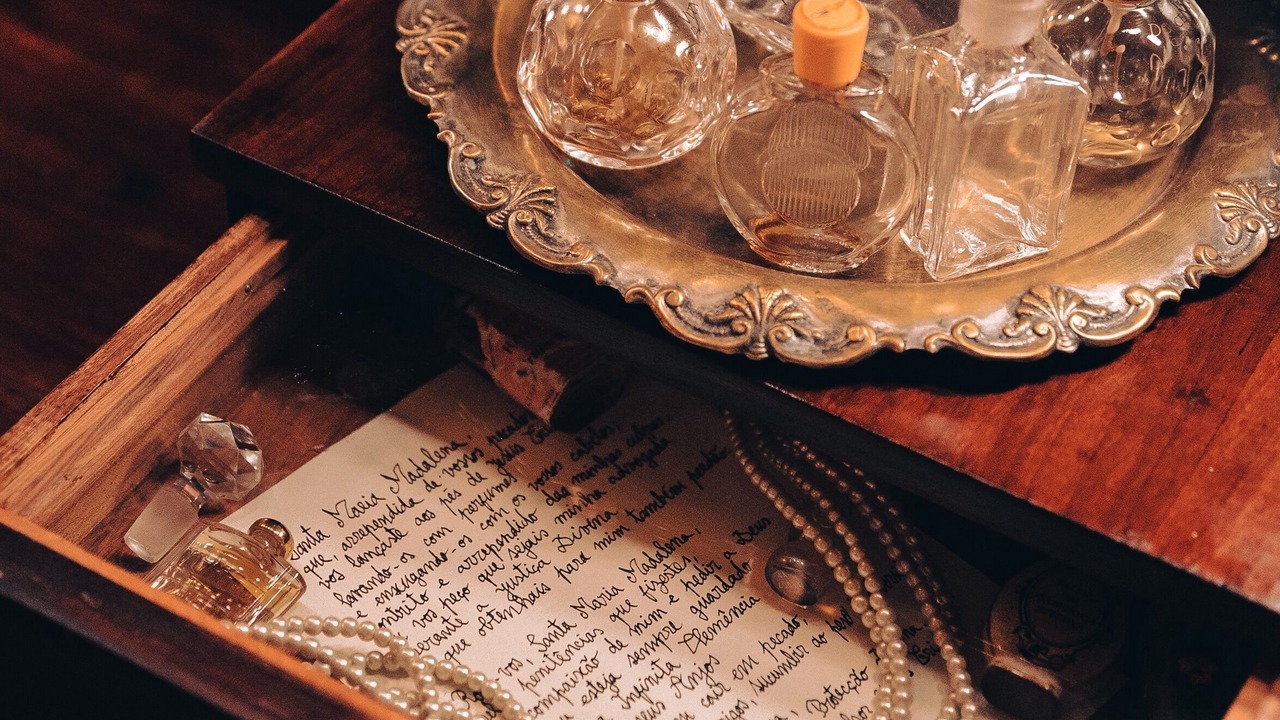 Santa Maria Madalena,
que, arrependida de vossos pecados
vos lançaste aos pés de Jesus
lavando-os com perfumes
e enxugando-os com os vossos cabelos,
contrito e arrependido das minhas culpas
vos peço que sejais minha advogada
perante a justiça Divina
que obtenhais para mim também
vós, Santa Maria Madalena,
penitências que fizestes,
compaixão de mim e pedir a Deus
esteja sempre guardado
infinita Clemência
Anjos
cair em pecado,
sucumbir ao
Protecção